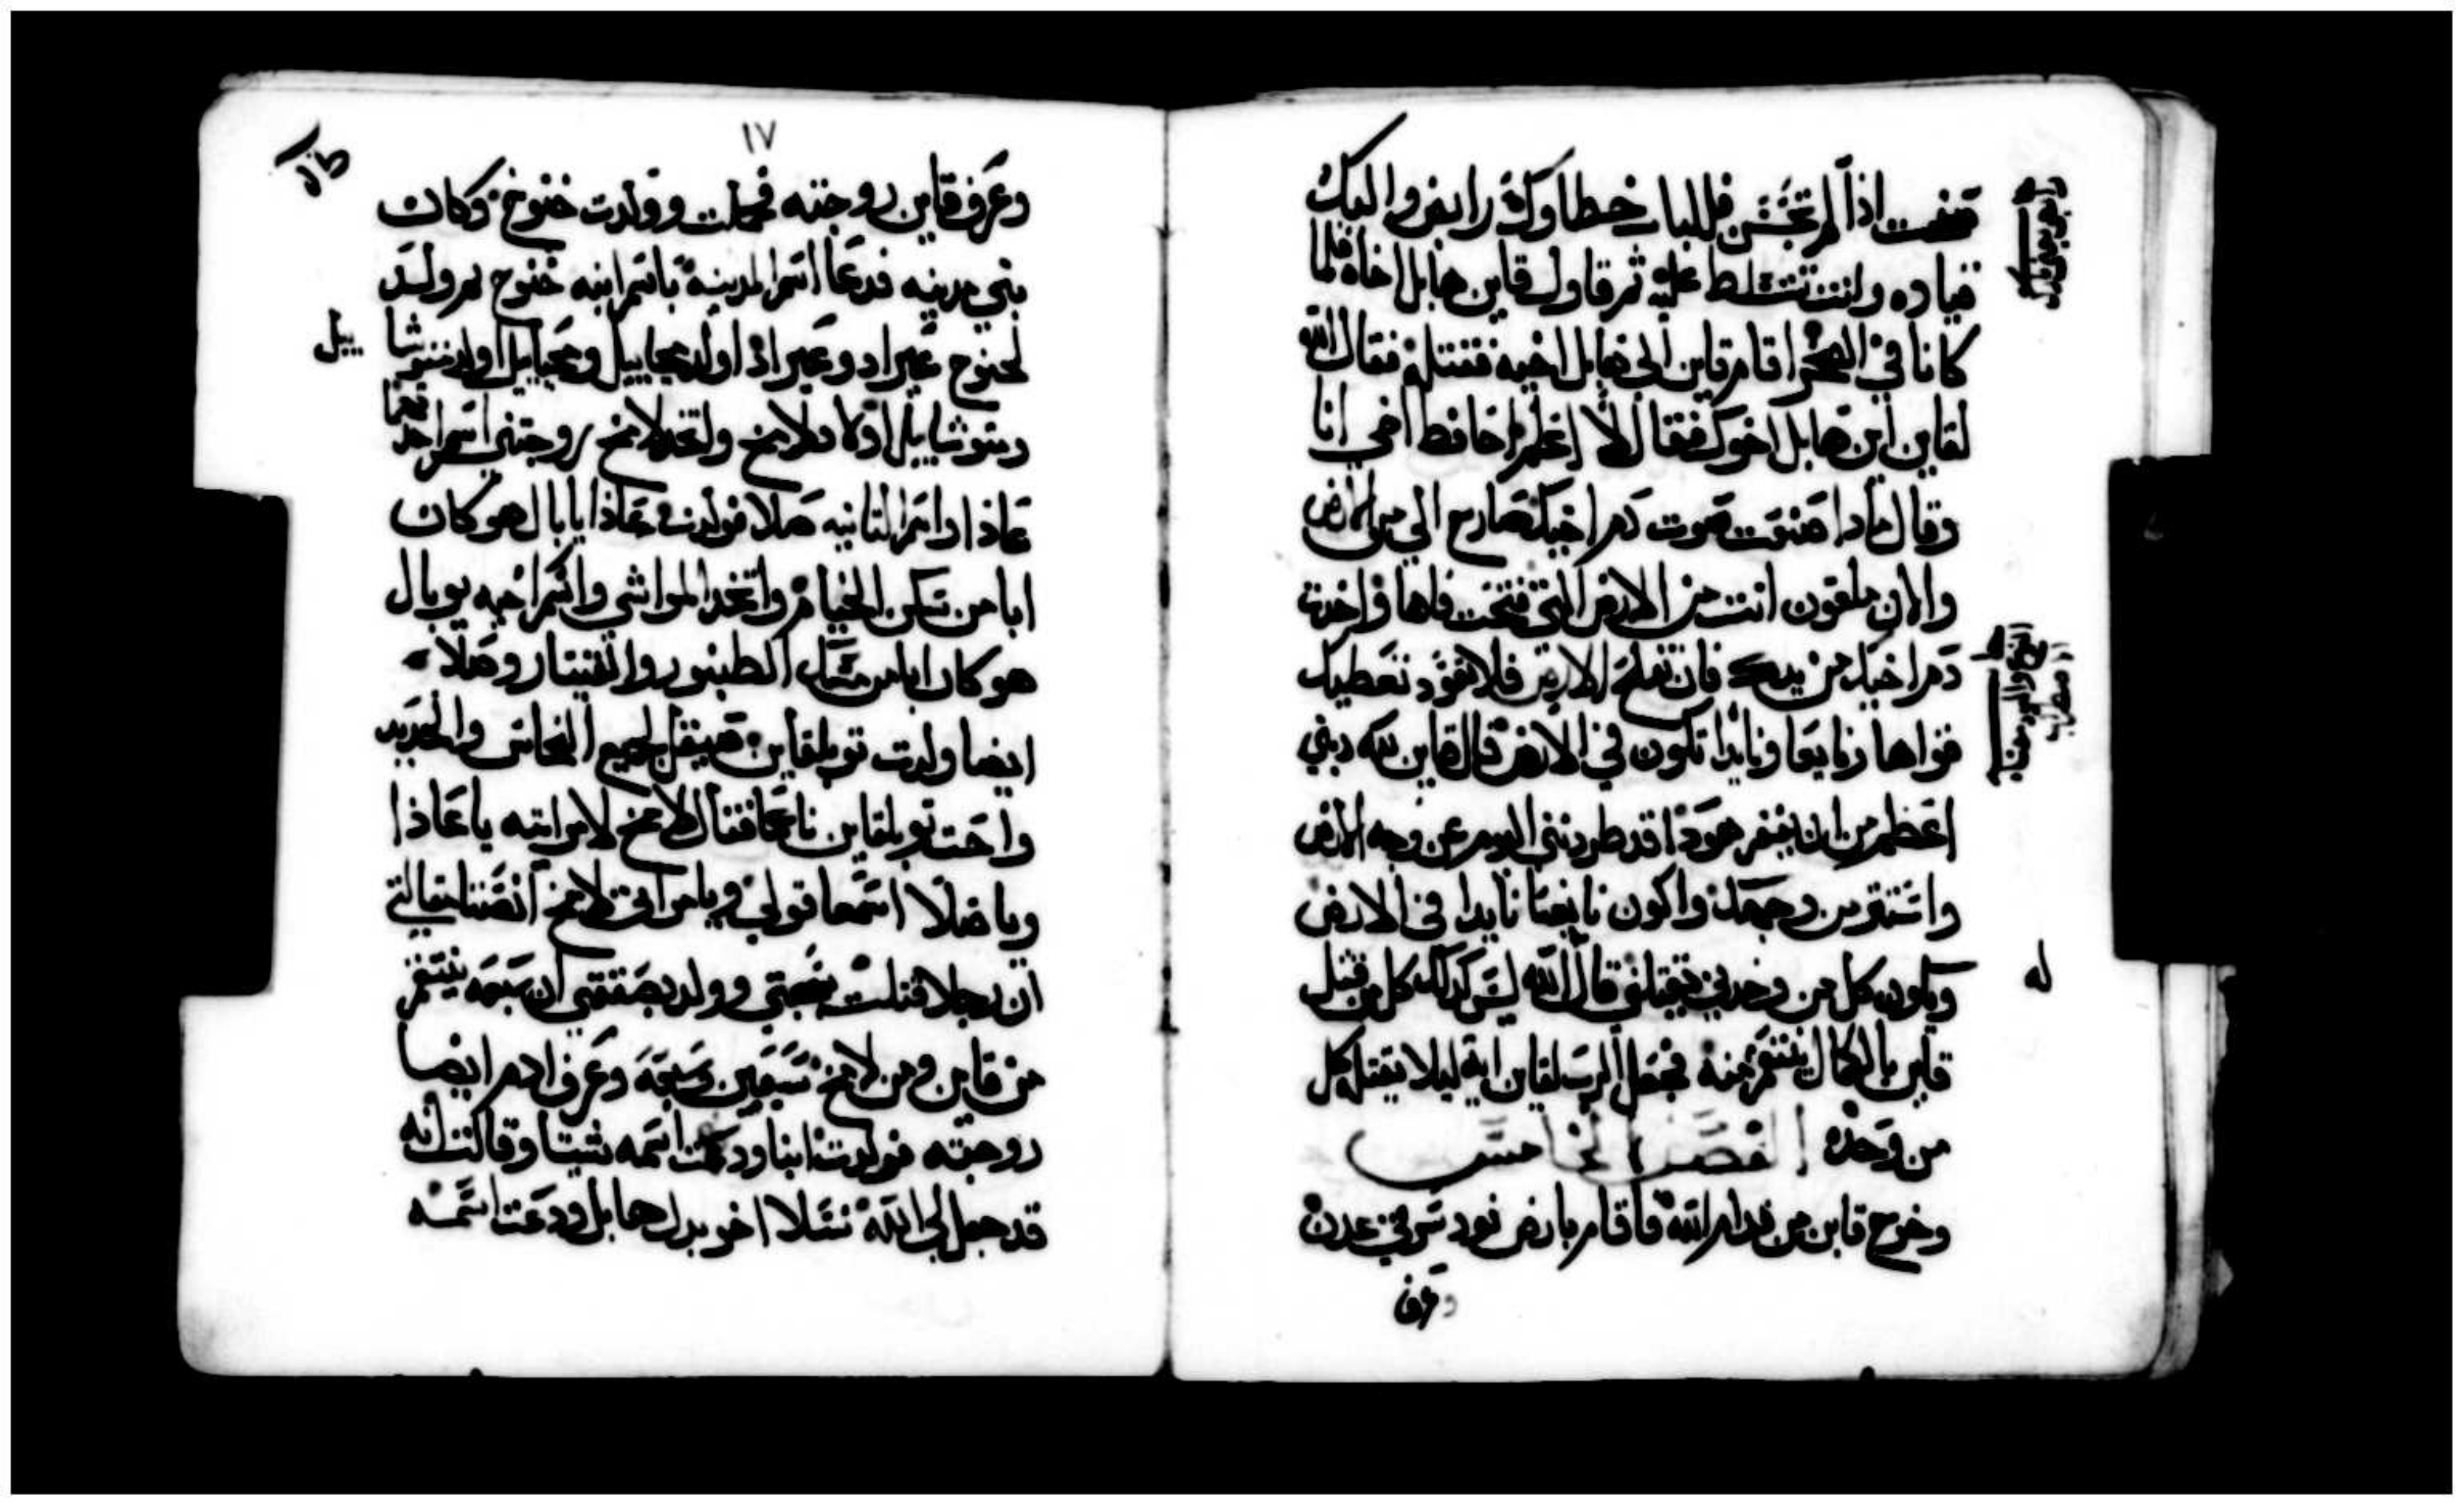 صنعت اذا لم تحسن فللباب خطاوك رابض واليك
قياده وانت تتسلط عليه ثم قاول قاين هابل اخاه فلما
كانا في الصحرا قام قاين الي هابل اخيه فقتله فقال الله
لقاين اين هابل اخوك فقال لا اعلم احافظ اخي انا
وقال ماذا صنعت صوت دم اخيك صارخ الي من الارض
والان ملعون انت من الارض التي فتحت فاها واخذت
دم اخيك من يدك فان تفلح الارض فلا تعود تعطيك
قواها زنايعا ونايدا تكون في الارض قال قاين لله ذنبي
اعظم من ان يغفر هوذا قد طردتني اليوم عن وجه الارض
واستتر من وجهك واكون نايعا نايدا في الارض
ويكون كل من وجدني يقتلني قال الله ليس كذلك كل من قتل
له
قاين بالكمال ينتقم منه فجعل الرب لقاين اية ليلا يقتله كل
من وجده الفصل الخامس
وخرج قاين من قدام الله فاقام بارض نود شرقي عدن
وعرف
١٧
وعرف قاين زوجته فحملت وولدت خنوخ وكان
بني مدينه فدعا اسم المدينة باسم ابنه خنوخ ثم ولد
لخنوخ عيراد وعيراد اولد محاييل ومحياييل اولد متوشا
ييل
ومتوشاييل اولاد للامخ واتخذ لامخ زوجتين اسم احدهما
عاذا واسم الثانيه صلا فولدت عاذا يابال هو كان
ابا من سكن الخيام واتخذ المواشي واسم اخيه يوبال
هو كان ابا من مسك الطنبور والقيتار وصلا
ايضا ولدت توبلقاين صيقل لجميع النحاس والحديد
واخت توبلقاين ناعما فقال لامخ لامراتيه يا عاذا
ويا صلا اسمعا قولي ويا امراتي لامخ انصتا لمقالتي
ان رجلا قتلت بشجتي وولد بصفقتي ان سبعه ينتقم
من قاين ومن لامخ سبعين وسبعه وعرف ادم ايضا
زوجته فولدت ابنا ودعت اسمه شيتا وقالت انه
قد جعل لي الله نسلا اخر بدل هابل ودعت اسمه